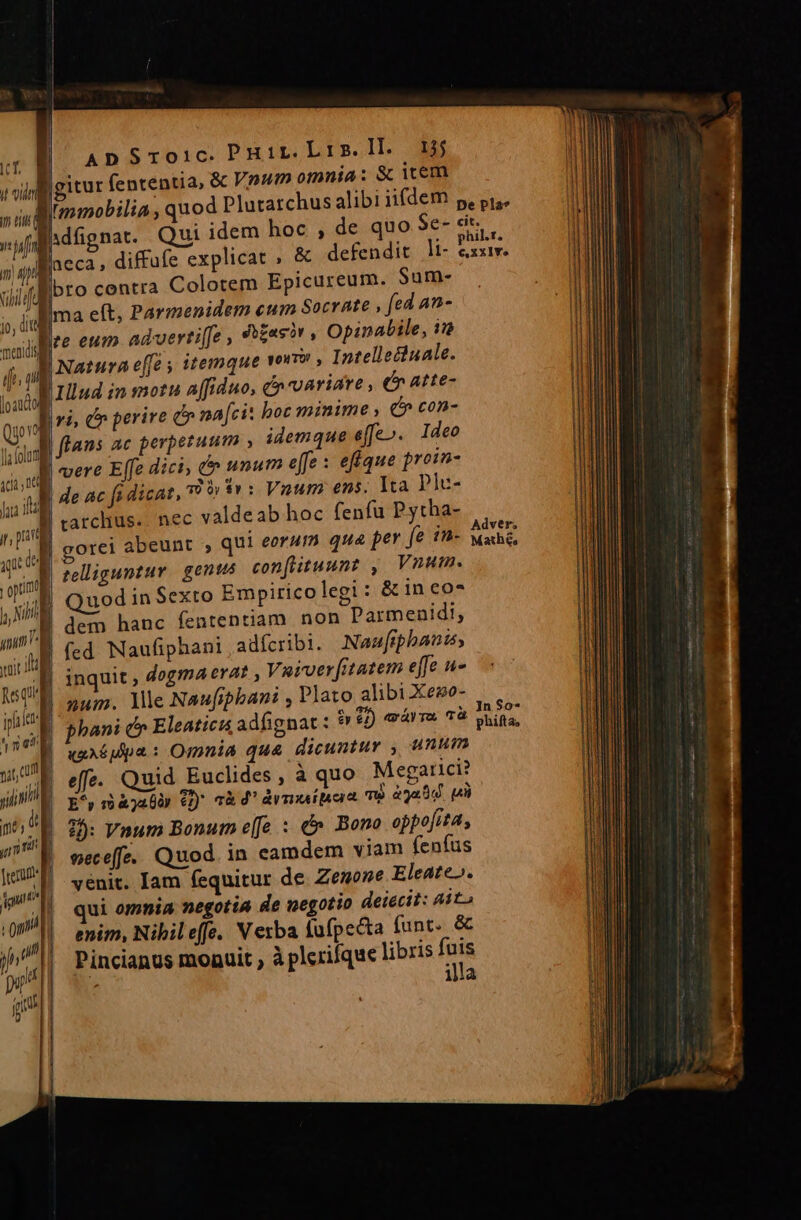 AD STOIC. PHIL. LIB. II. 135
igitur ſententia, & Vnum omnia: & item
Immobilia, quod Plutarchus alibi iiſdem
adſignat. Qui idem hoc, de quo Se-
neca, diffuſe explicat, & defendit li-
bro contra Colotem Epicureum. Sum-
ma eſt, Parmenidem cum Socrate, ſed an-
te eum advertiſſe, δοξαϛὸν, Opinabile, in
Natura eſſe; itemque νοητὸν, Intellectuale.
Illud in motu aſſiduo, & variare, & atte-
ri, & perire & naſci: hoc minime, & con-
ſtans ac perpetuum, idemque eſſe. Ideo
vere Eſſe dici, & unum eſſe: eſtque proin-
de ac ſi dicat, τὸ ὂν ἓν: Vnum ens. Ita Plu-
tarchus. nec valde ab hoc ſenſu Pytha-
gorei abeunt, qui eorum quæ per ſe in-
telliguntur genus conſtituunt, Vnum.
Quod in Sexto Empirico legi: & in eo-
dem hanc ſententiam non Parmenidi,
ſed Nauſiphani adſcribi. Nauſiphanis,
inquit, dogma erat, Vniverſitatem eſſe u-
num. Ille Nauſiphani, Plato alibi Xeno-
phani & Eleaticis adſignat: ἓν εἶναι πάντα τὰ
καλούμενα: Omnia quæ dicuntur, unum
eſſe. Quid Euclides, à quo Megarici?
Ἓν τὸ ἀγαθὸν εἶναι· τὰ δ' ἀντικείμενα τῷ ἀγαθῷ μὴ
εἶναι: Vnum Bonum eſſe: & Bono oppoſita,
neceſſe. Quod in eamdem viam ſenſus
venit. Iam ſequitur de Zenone Eleate.
qui omnia negotia de negotio deiecit: ait
enim, Nihil eſſe. Verba ſuſpecta ſunt. &
Pincianus monuit, à pleriſque libris ſuis
illa
De pla-
cit.
phil. I.
c. xxIV.
Adver.
Mathé.
In So-
phiſta.